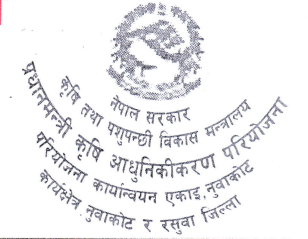 नेपाल सरकार
कृषि तथा पशुपन्छी विकास मन्त्रालय
प्रधानमन्त्री कृषि आधुनिकीकरण परियोजना
परियोजना कार्यान्वयन एकाइ, नुवाकोट
कार्यक्षेत्र नुवाकोट र रसुवा जिल्ला